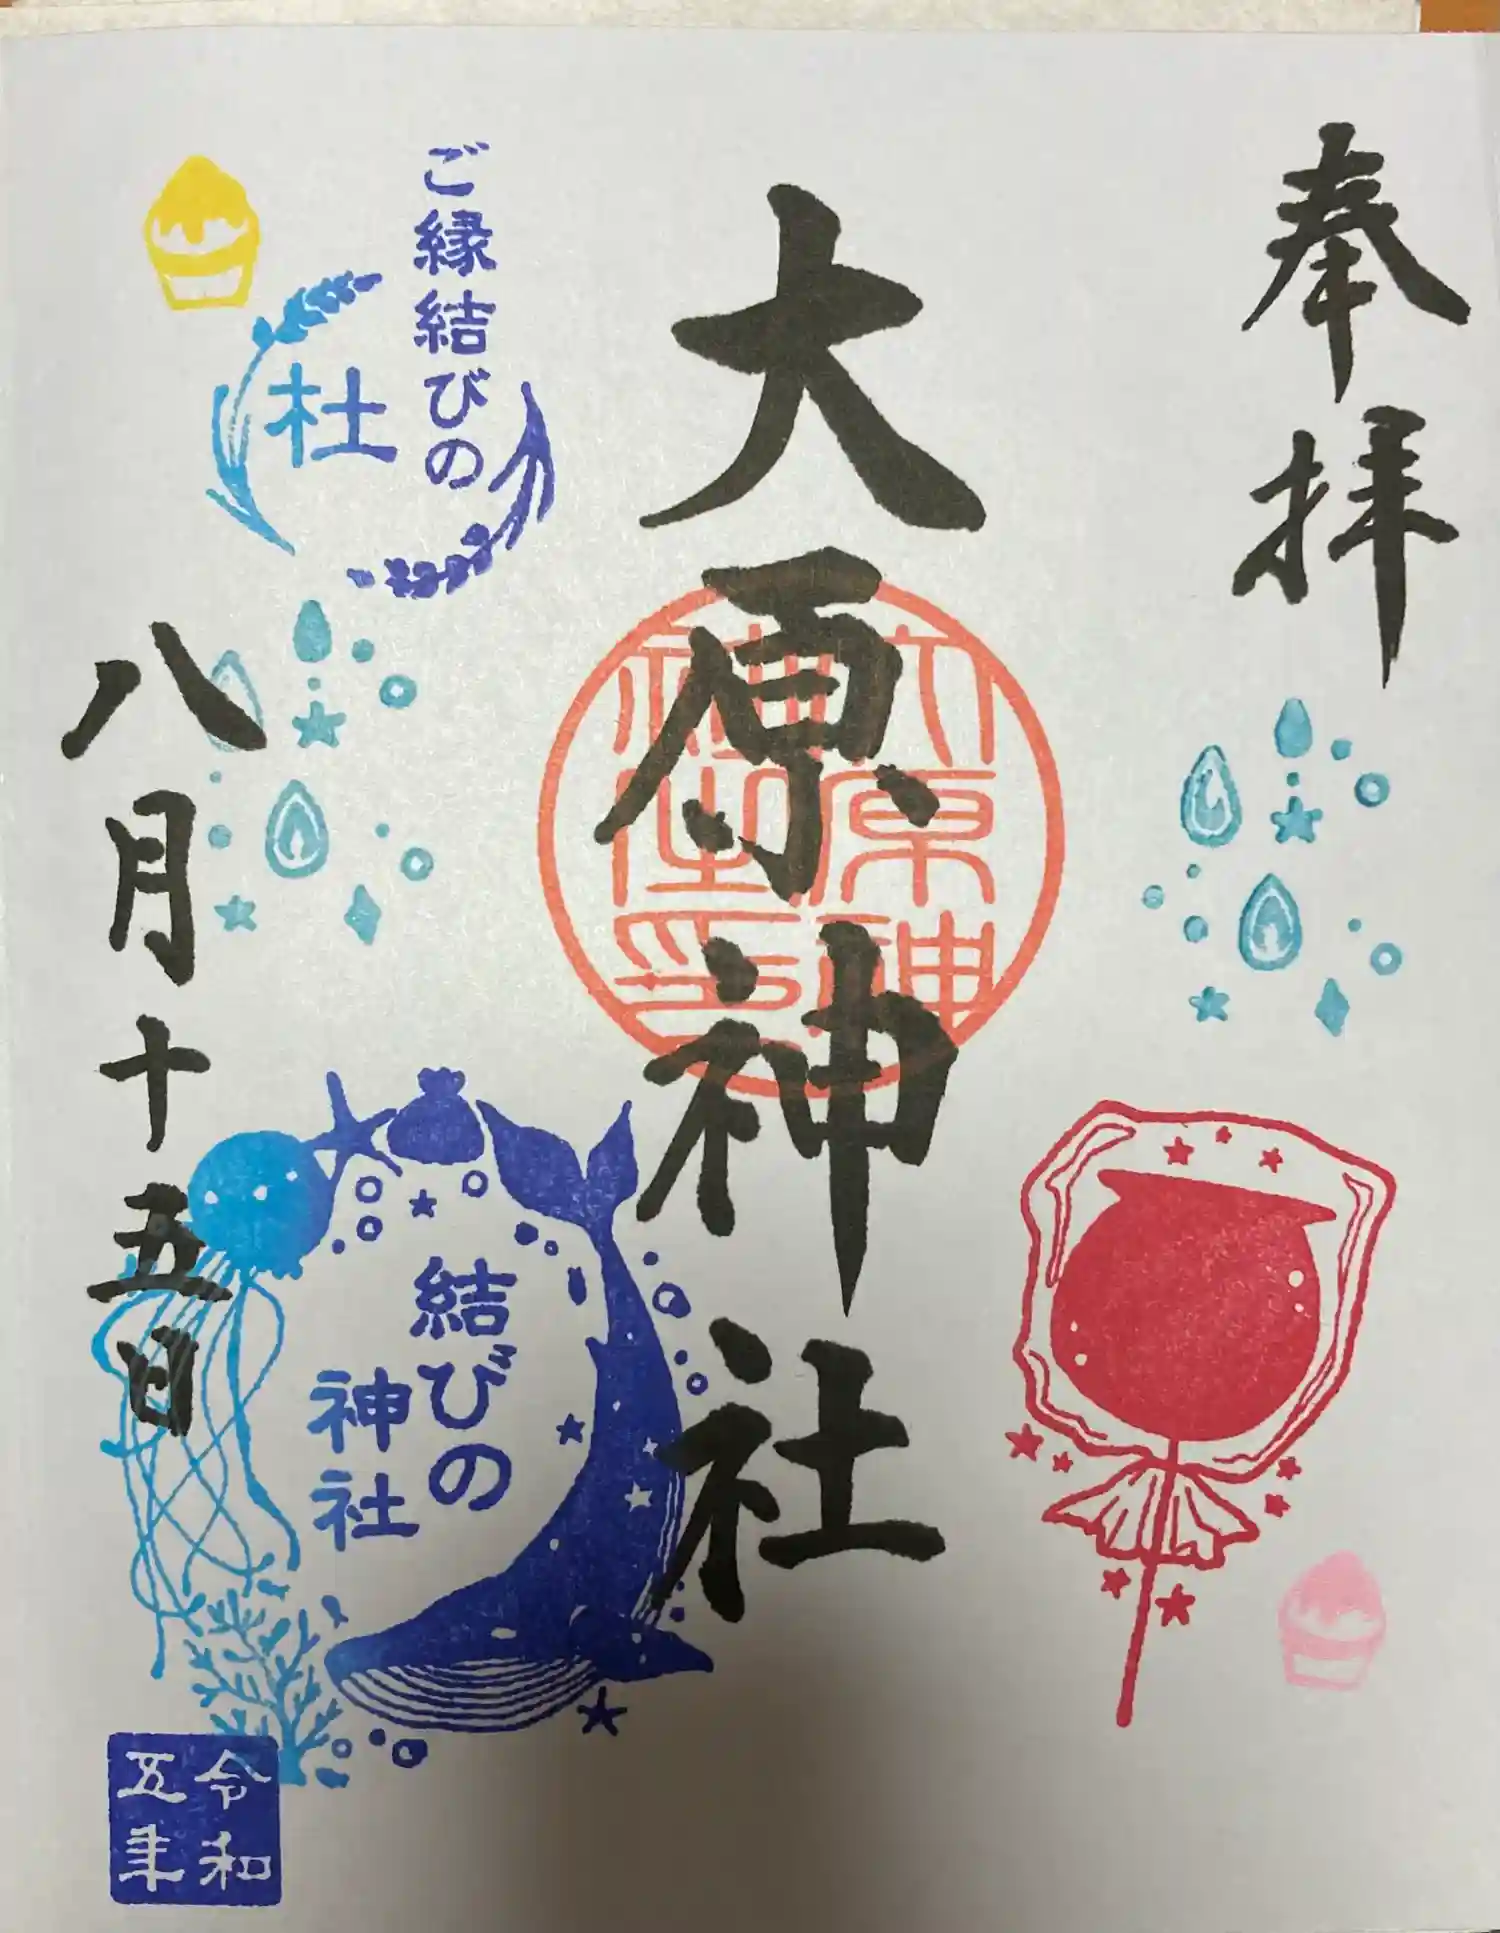 奉拝
大原神社
大原神社之印
ご縁結びの
杜
結びの
神社
八月十五日
令和
五年